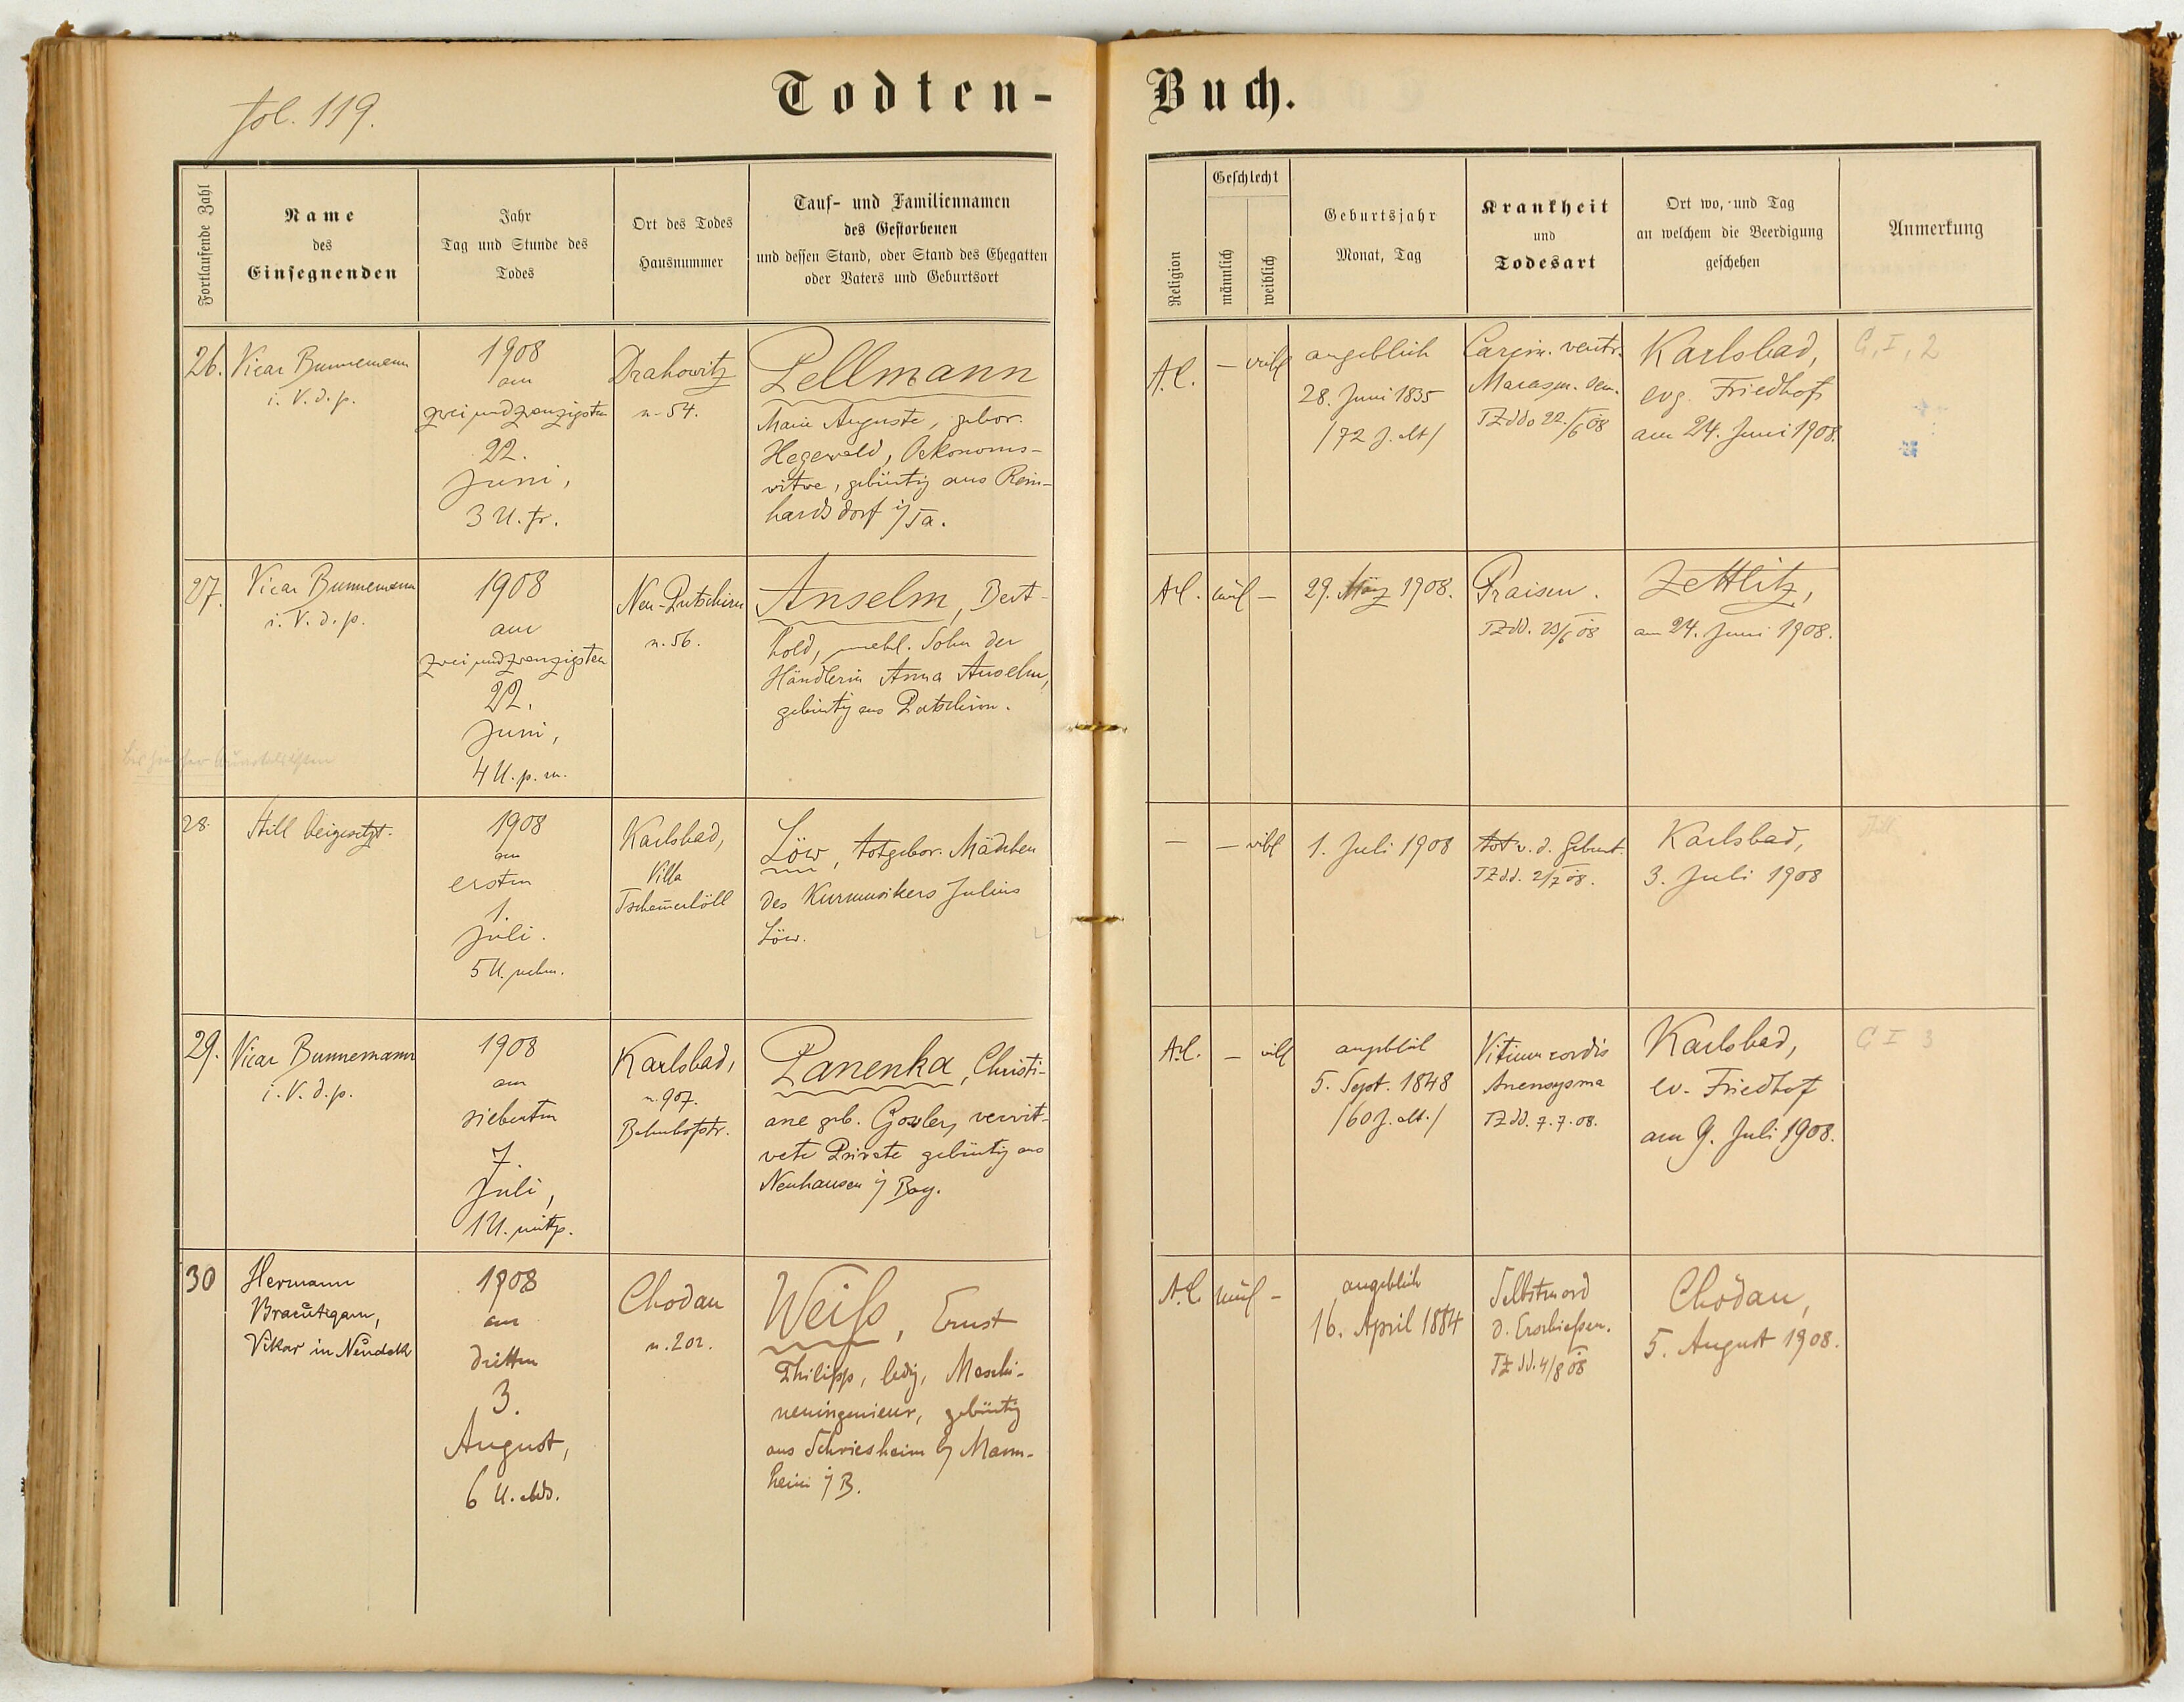 fol. 119.
Todten-Buch.
Fortlaufende Zahl
Name
des
Einsegnenden
Jahr
Tag und Stunde des
Todes
Ort des Todes
Hausnummer
Tauf- und Familiennamen
des Gestorbenen
und dessen Stand, oder Stand des Ehegatten
oder Vaters und Geburtsort
Religion
Geschlecht
männlich
weiblich
Geburtsjahr
Monat, Tag
Krankheit
und
Todesart
Ort wo, und Tag
an welchem die Beerdigung
geschehen
Anmerkung
26.
Vicar Bunnemann
i. V. d. p.
1908
am
zweiundzwanzigsten
22.
Juni,
3 U. fr.
Drahowitz
n. 54.
Pellmann
Marie Auguste, gebor.
Hegewald, Oekonoms-
witwe, gebürtig aus Rein-
hardsdorf i/Sa.
A.C.
–
weibl
angeblich
28. Juni 1835
/72 J. alt/
Carcin. ventr.
Marasm. sen.
TZ ddo 22./6 08
Karlsbad,
evg. Friedhof
am 24. Juni 1908.
G, I, 2
27.
Vicar Bunnemann
i. V. d. p.
1908
am
zweiundzwanzigsten
22.
Juni,
4 U. p. m.
Neu-Putschirn
n. 56.
Anselm, Bert-
hold, unehl. Sohn der
Händlerin Anna Anselm,
gebürtig aus Putschirn.
A.C.
männl
–
29. März 1908.
Fraisen.
TZ dd. 23/6 08
Zettlitz,
am 24. Juni 1908.
28.
Still beigesetzt.
1908
am
ersten
1.
Juli.
5 U. nchm.
Karlsbad,
Villa
Löw, totgebor. Mädchen
des Kurmusikers Julius
Löw.
–
– weibl
1. Juli 1908
tot v. d. Geburt.
TZ d.d. 2/7 08.
Karlsbad,
3. Juli 1908
29.
Vicar Bunnemann
i. V. d. p.
1908
am
siebenten
7.
Juli,
1 U. mittg.
Karlsbad,
n. 907.
Bahnhofstr.
Panenka, Christi-
ane geb. verwit-
wete Private gebürtig aus
Neuhausen i/ Bay.
A.C.
–
weibl
angeblich
5. Sept. 1848
/60 J. alt./
Vitium cordis
Aneurysma
TZ dd. 7.7.08.
Karlsbad,
ev. Friedhof
am 9. Juli 1908.
G I 3
30
Hermann
Bräutigam,
Vikar in Neudek
1908
am
dritten
3.
August,
6 U. abds.
Chodau
n. 202.
Weiß, Ernst
Philipp, ledig, Maschi-
neningenieur, gebürtig
aus Schriesheim b/ Mann-
heim i/ B.
A.C.
männl
–
angeblich
16. April 1884
Selbstmord
d. Erschießen.
TZ dd. 4/8 08
Chodau,
5. August 1908.